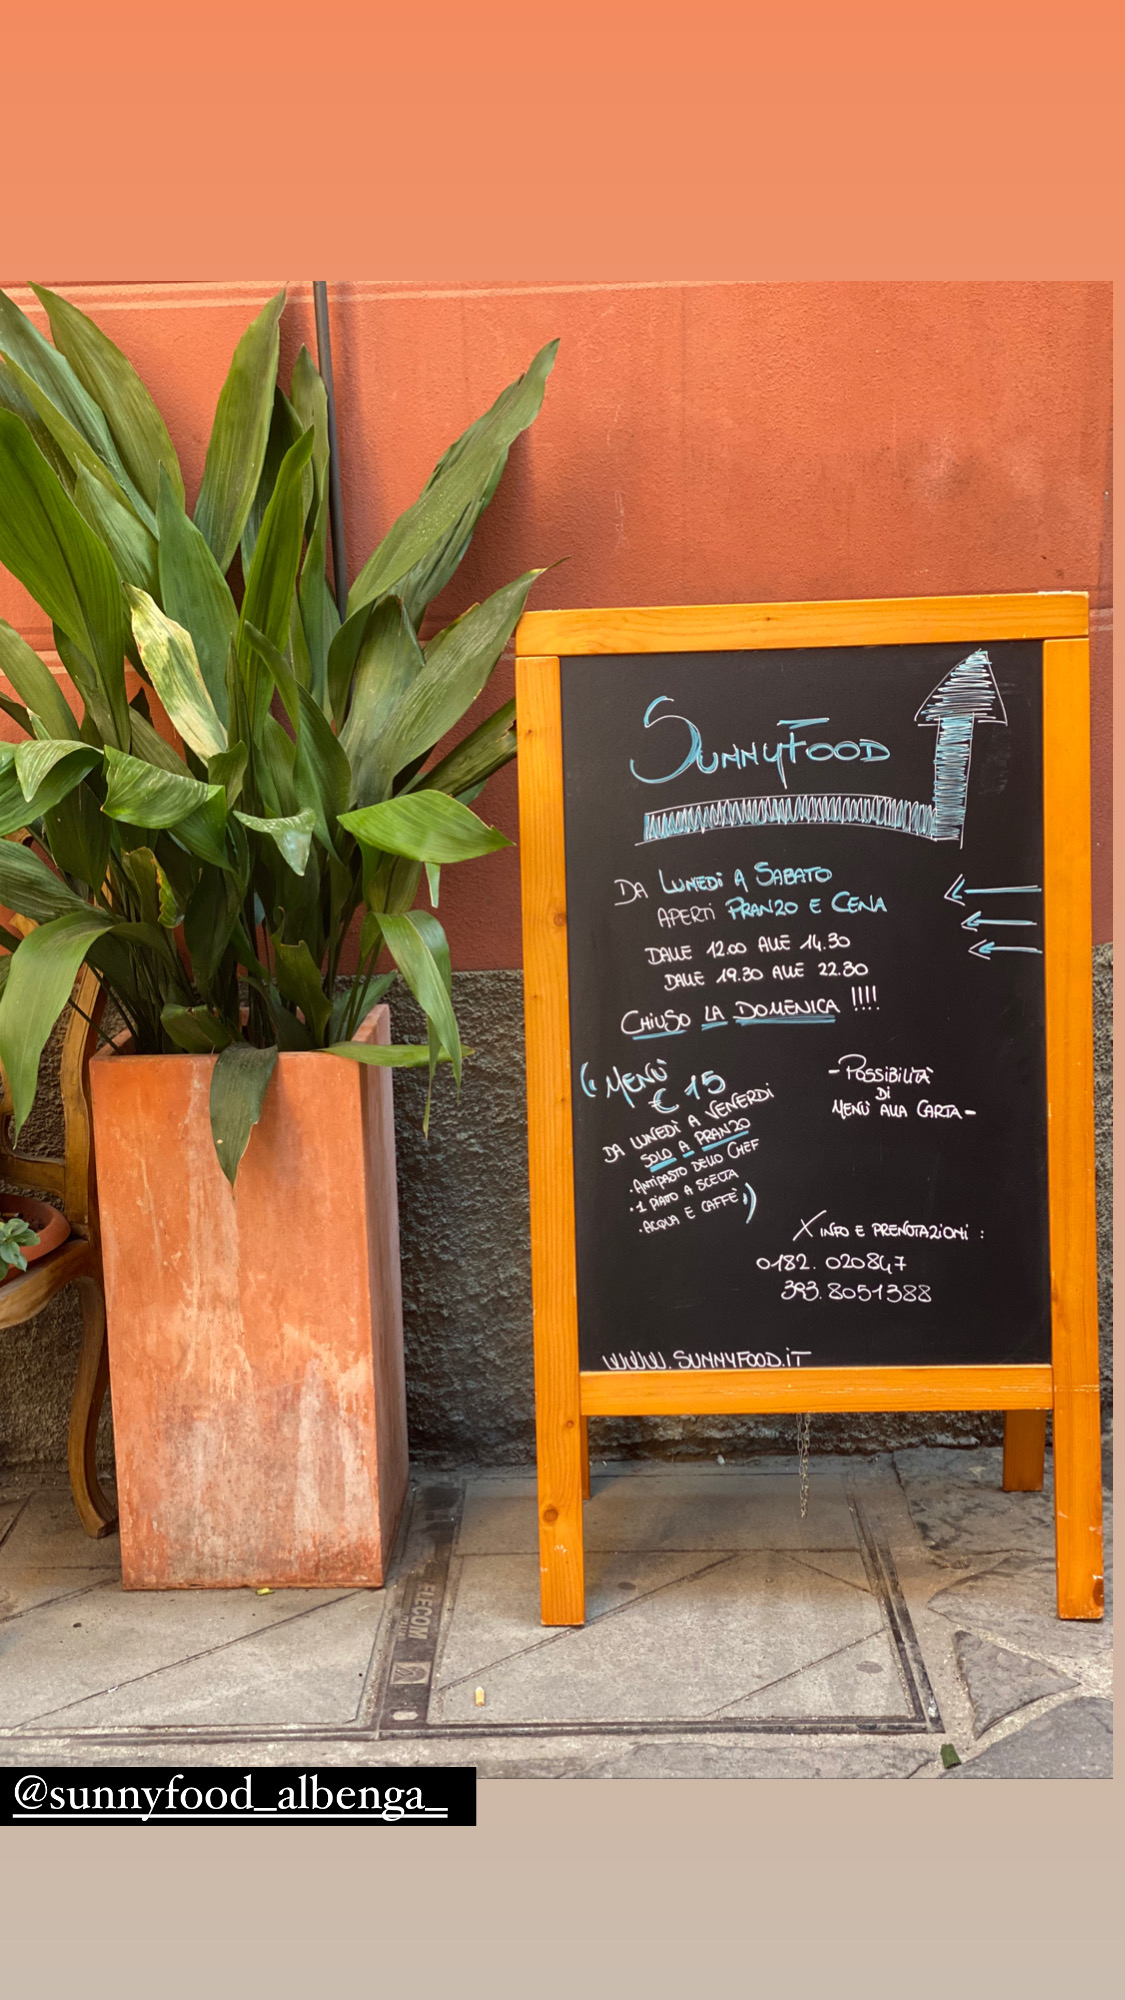 SUNNYFOOD
DA LUNEDÌ A SABATO
APERTI PRANZO E CENA
DALLE 12.00 ALLE 14.30
DALLE 19.30 ALLE 22.30
CHIUSO LA DOMENICA !!!!
(( MENÙ
€ 15
DA LUNEDÌ A VENERDÌ
SOLO A PRANZO
· ANTIPASTO DELLO CHEF
· 1 PIATO A SCELTA
· ACQUA E CAFFÈ ))
- POSSIBILITÀ
DI
MENÙ ALLA CARTA -
X INFO E PRENOTAZIONI :
0182. 020847
393. 8051388
WWW. SUNNYFOOD.IT
ELECOM
@sunnyfood_albenga_